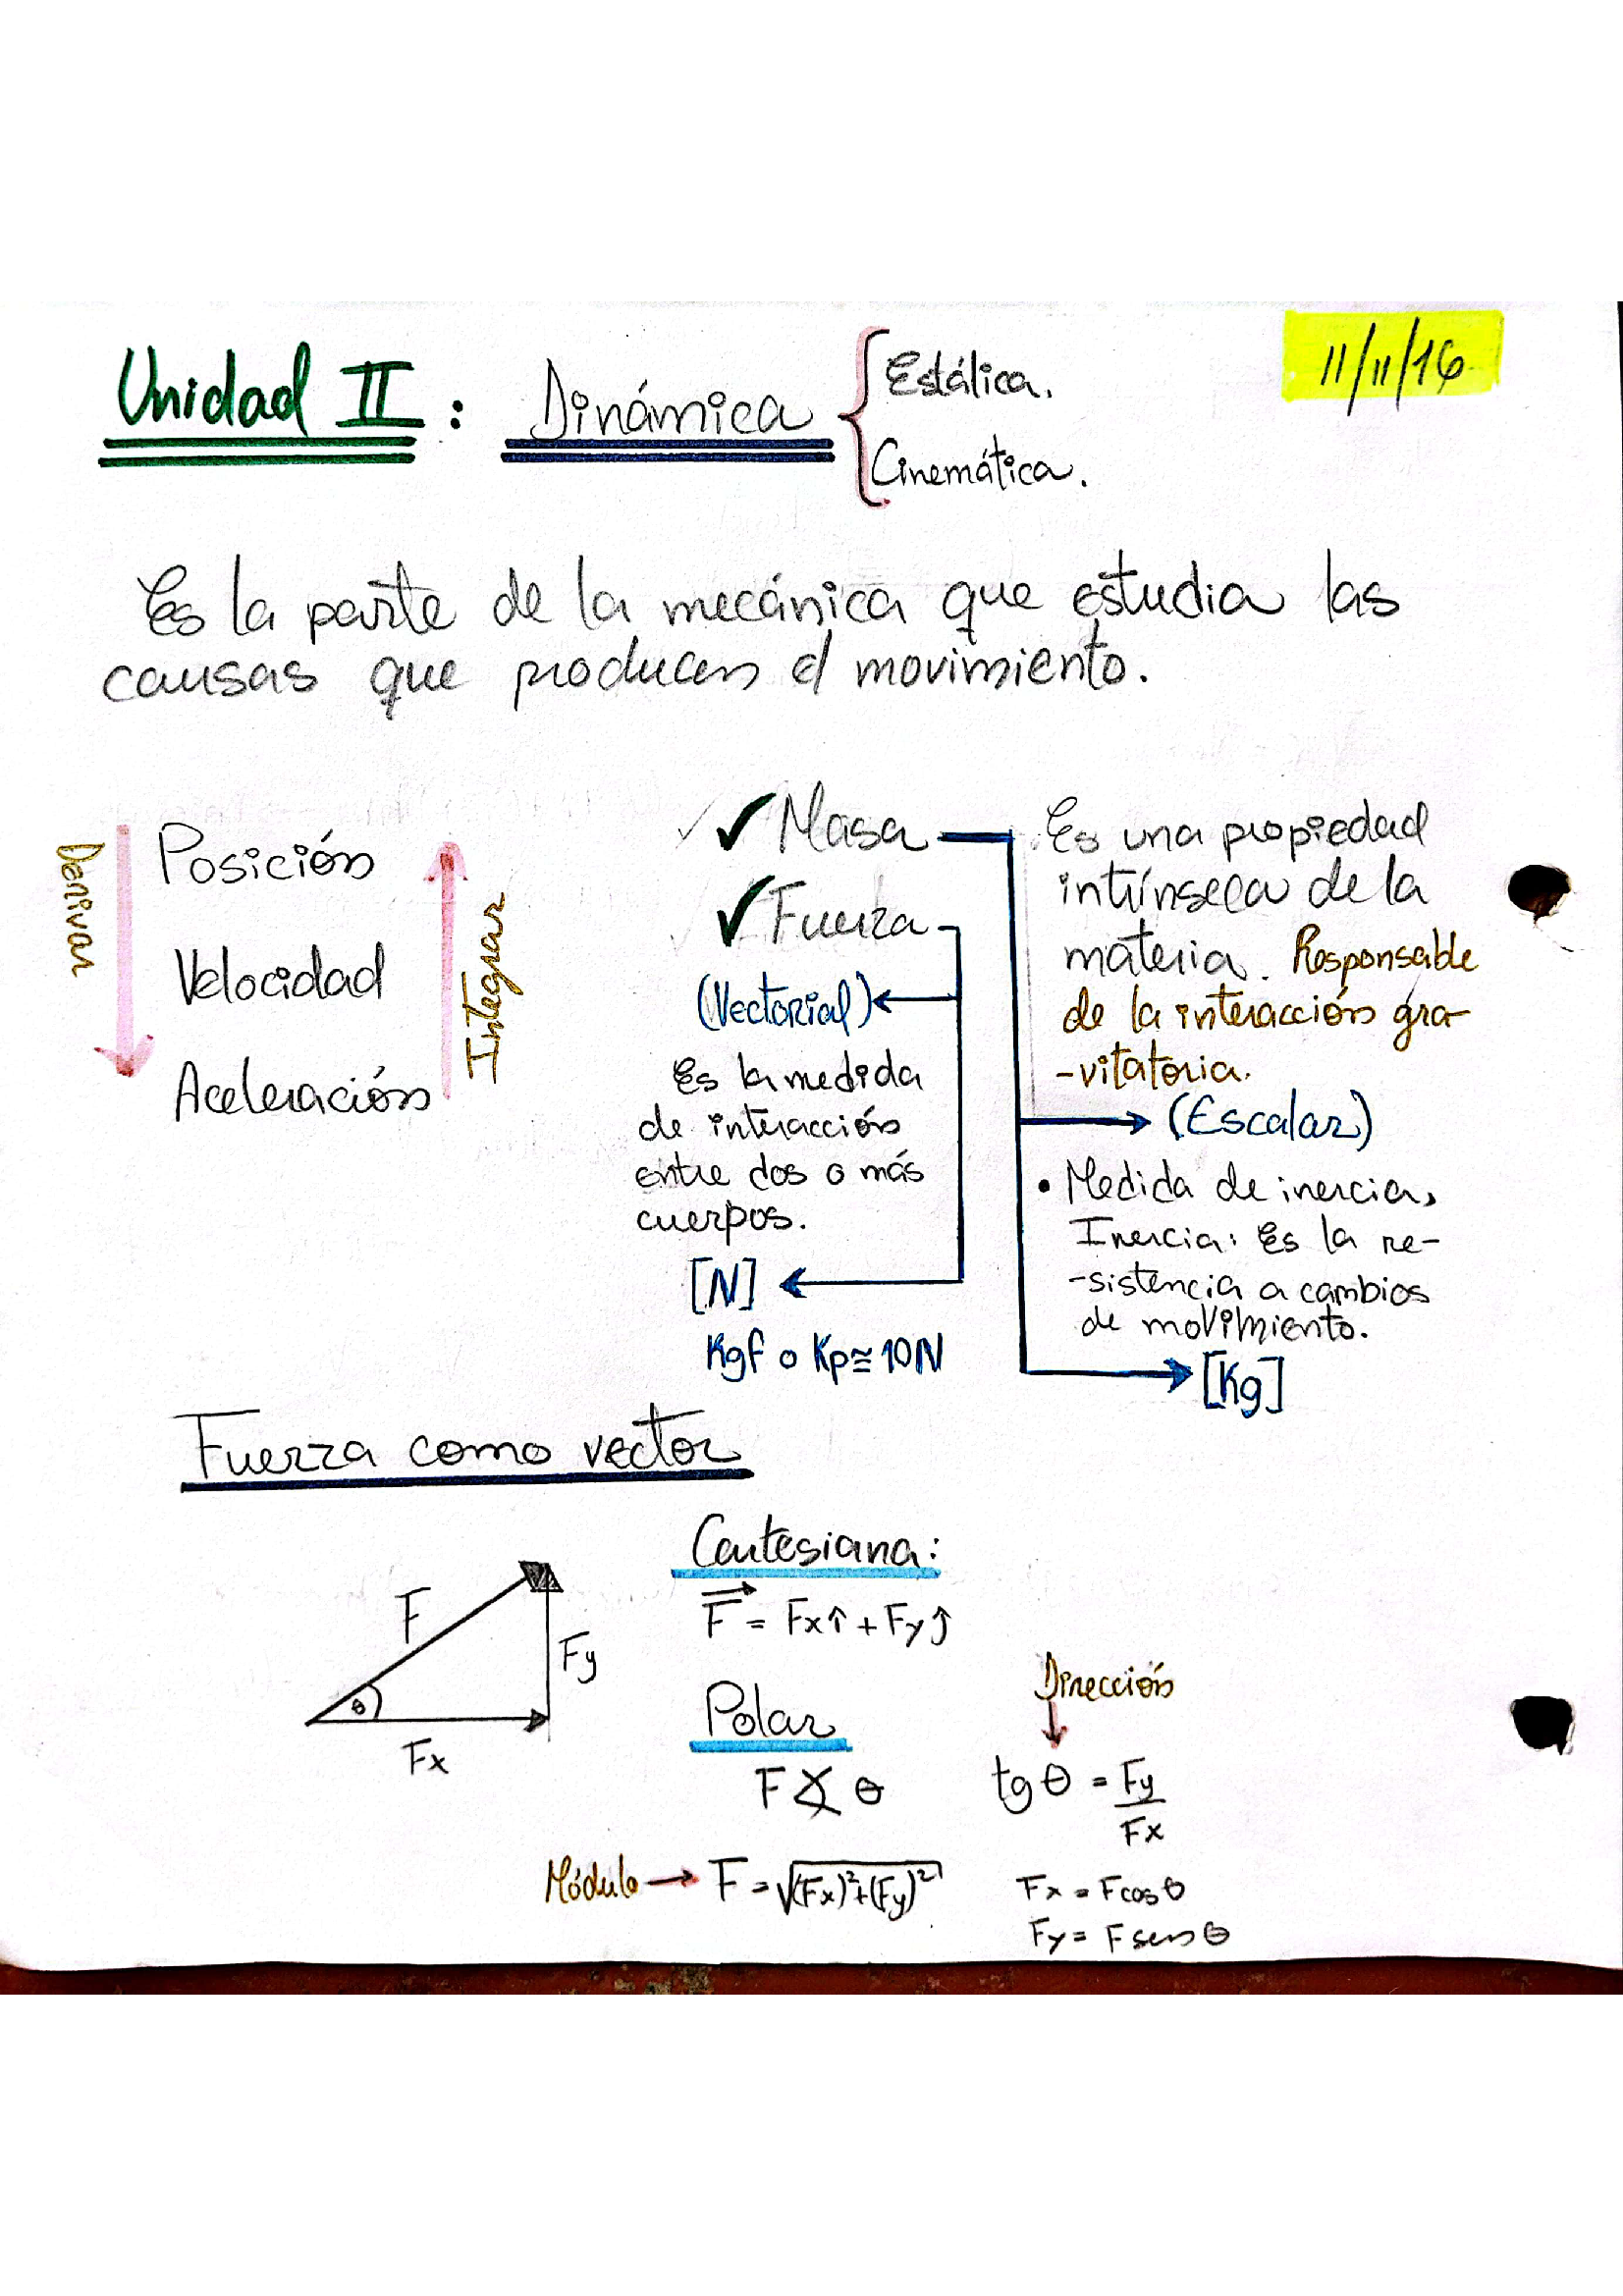 Unidad II : Dinámica
Estática.
Cinemática.
11/11/16
Es la parte de la mecánica que estudia las
causas que producen el movimiento.
Derivar
Posición
Velocidad
Aceleración
Integrar
✓ Masa
✓ Fuerza
(Vectorial)
Es la medida
de interacción
entre dos o más
cuerpos.
[N]
Kgf o Kp ≅ 10N
Es una propiedad
intrínseca de la
materia. Responsable
de la interacción gra-
-vitatoria.
(Escalar)
• Medida de inercia,
Inercia: Es la re-
-sistencia a cambios
de movimiento.
[Kg]
Fuerza como vector
F
Fy
θ
Fx
Cartesiana:
F⃗ = Fx î + Fy ĵ
Polar
F ∡ θ
Módulo → F = √(Fx)²+(Fy)²
Dirección
tg θ = Fy/Fx
Fx = F cos θ
Fy = F sen θ